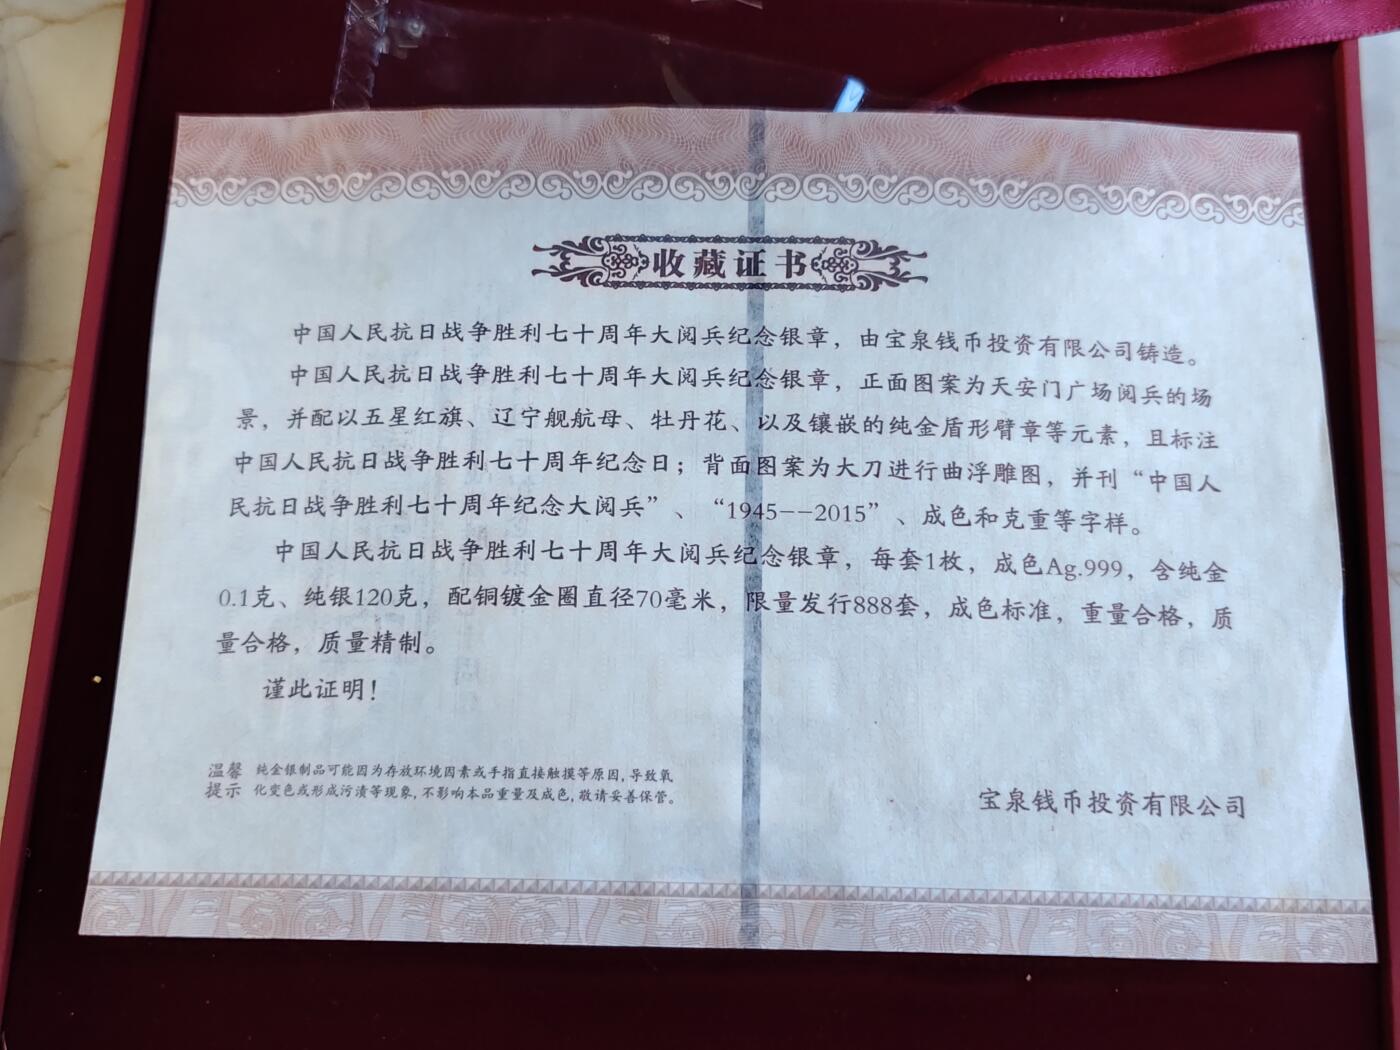 收藏证书
中国人民抗日战争胜利七十周年大阅兵纪念银章，由宝泉钱币投资有限公司铸造。
中国人民抗日战争胜利七十周年大阅兵纪念银章，正面图案为天安门广场阅兵的场
景，并配以五星红旗、辽宁舰航母、牡丹花、以及镶嵌的纯金盾形臂章等元素，且标注
中国人民抗日战争胜利七十周年纪念日；背面图案为大刀进行曲浮雕图，并刊“中国人
民抗日战争胜利七十周年纪念大阅兵”、“1945--2015”、成色和克重等字样。
中国人民抗日战争胜利七十周年大阅兵纪念银章，每套1枚，成色Ag.999，含纯金
0.1克、纯银120克，配铜镀金圈直径70毫米，限量发行888套，成色标准，重量合格，质
量合格，质量精制。
谨此证明！
温馨 纯金银制品可能因为存放环境因素或手指直接触摸等原因，导致氧
提示 化变色或形成污渍等现象，不影响本品重量及成色，敬请妥善保管。
宝泉钱币投资有限公司